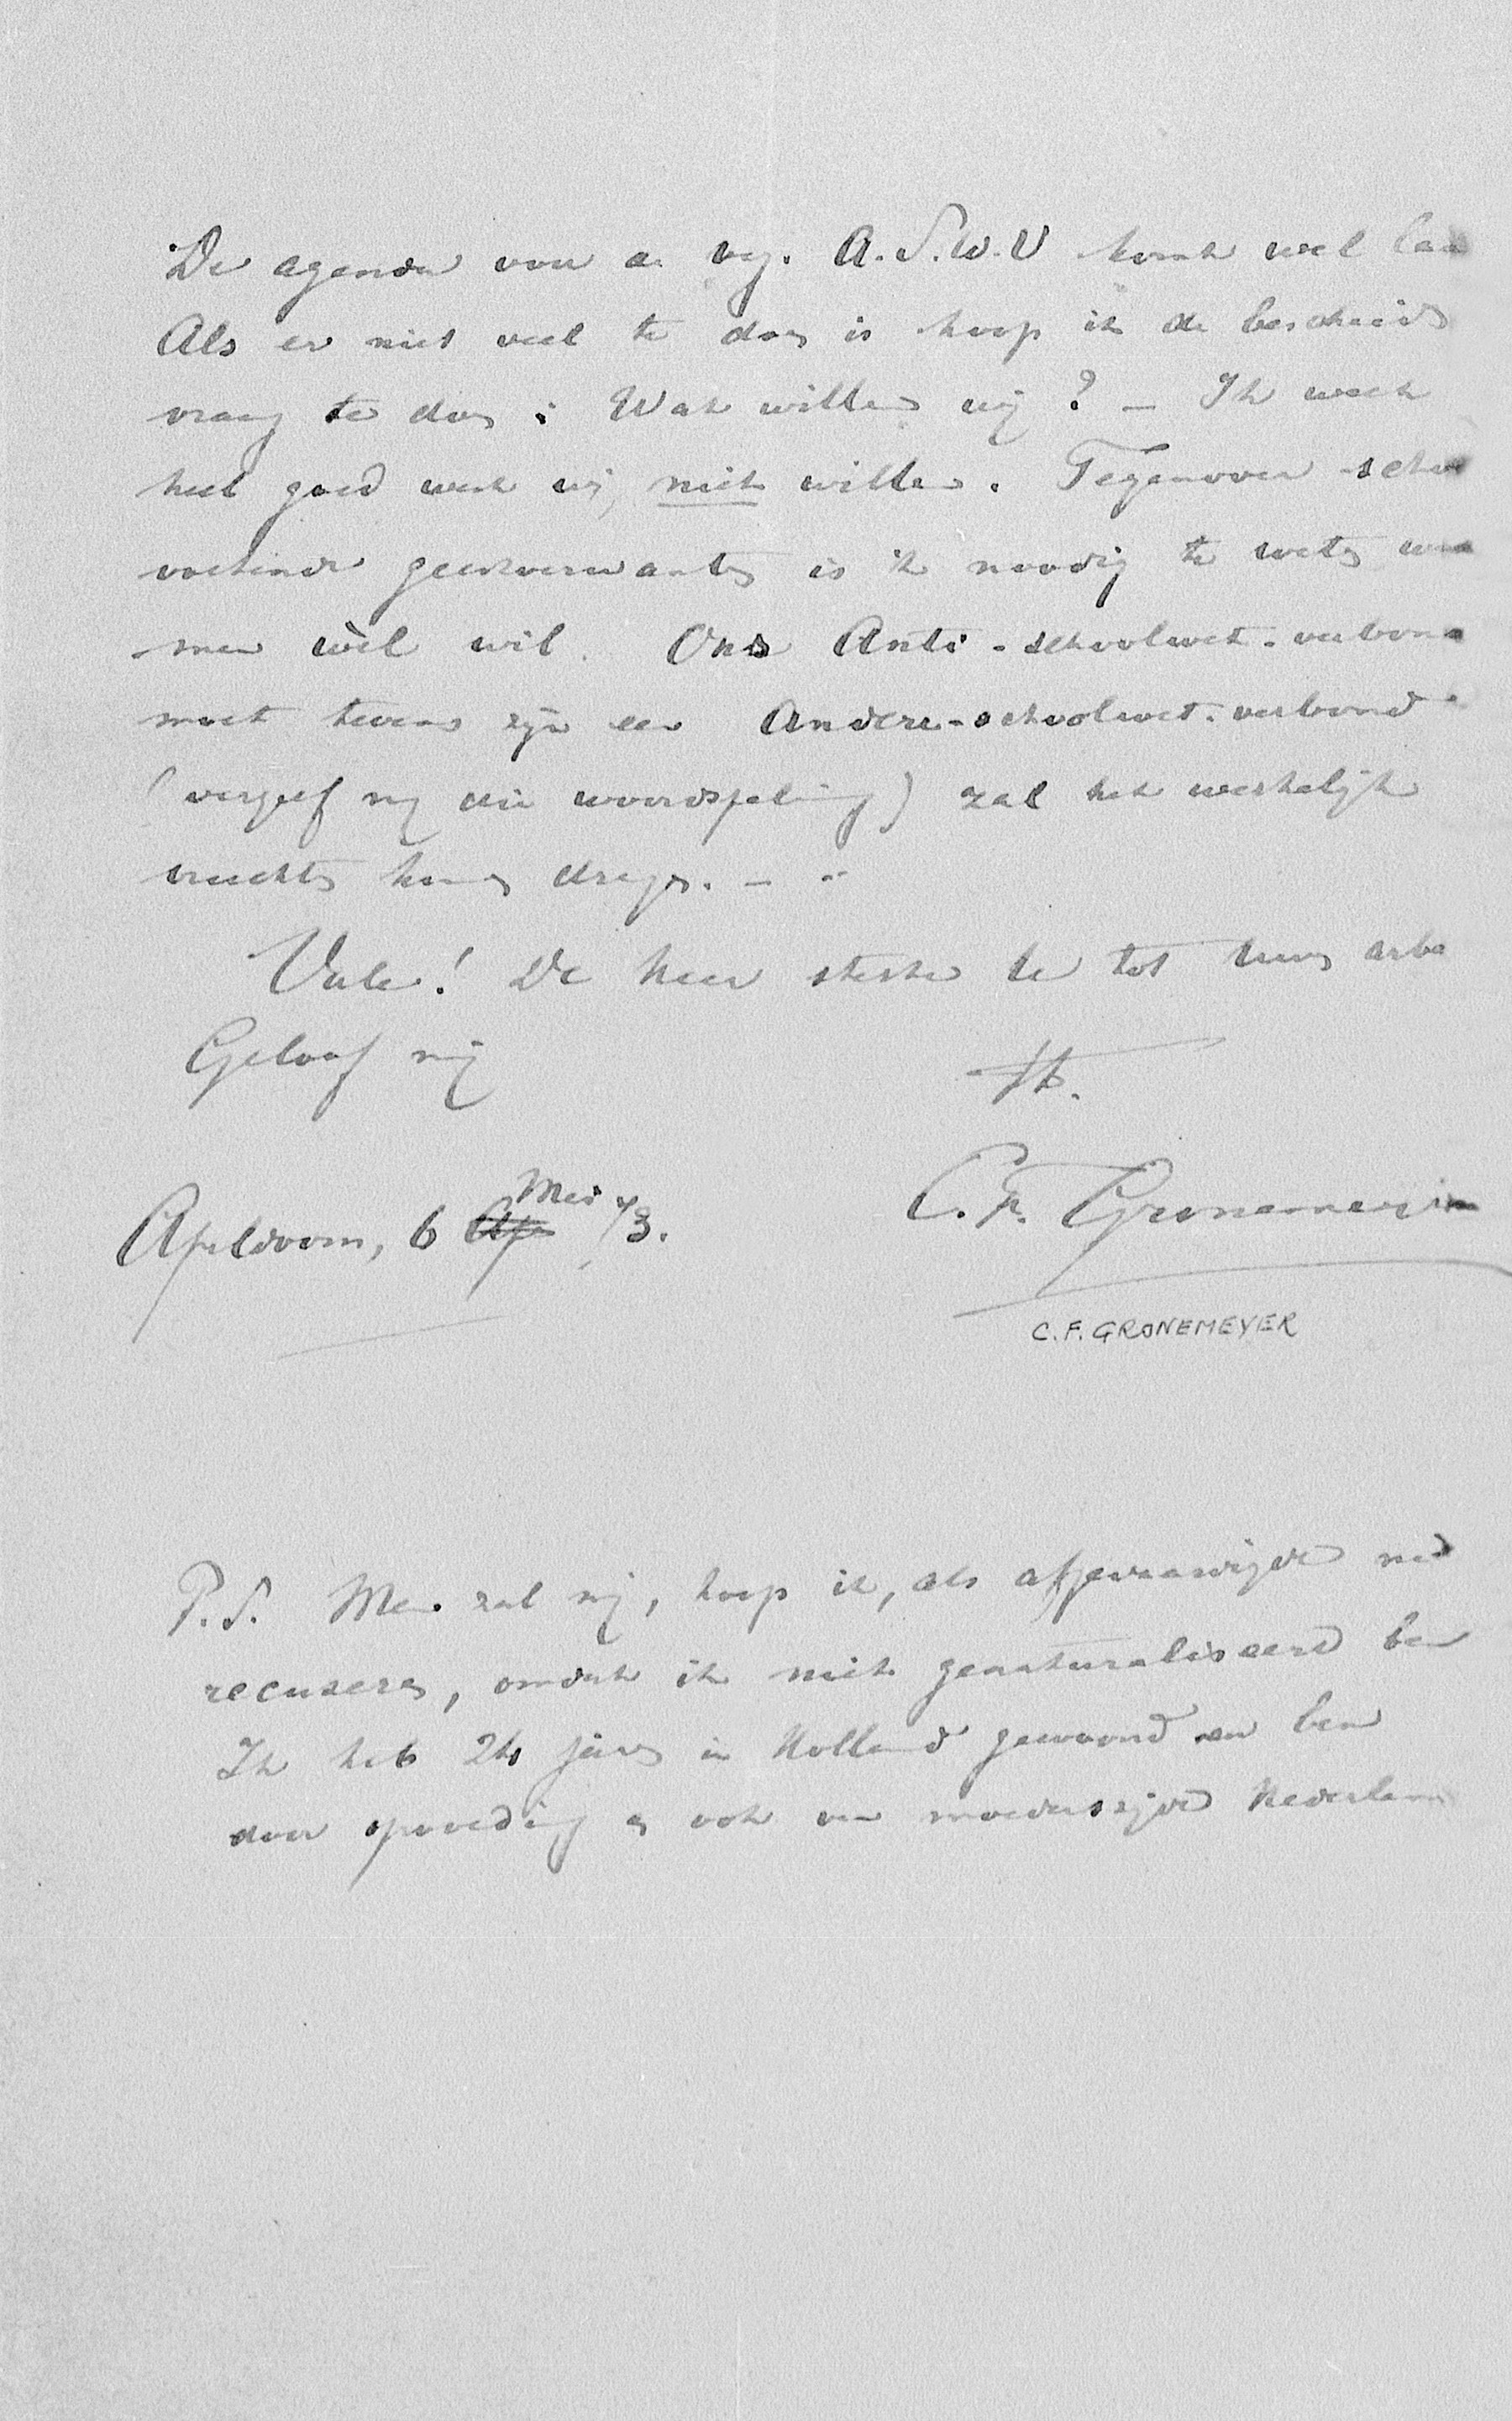 De agenda van de verg. A.S.W.V komt wel
Als er niet veel te doen is hoop ik de bescheid
vraag te doen: Wat willen wij? – Ik weet
heel goed wat wij niet willen. Tegenover
geestverwanten is 't noodig te weten
men wèl wil. Ons Anti-schoolwet-verbon
moet tevens zijn een Andere-schoolwet-verbond
(vergeef mij die woordspeling) zal het werkelijk
vruchten kunnen dragen. –
Vale! De Heer sterke Uw arb
Geloof mij
tt.
Apeldoorn, 6 Apr Mei 73.
C. F. Gronemeijer
C.F. GRONEMEYER
P.S. Men zal mij, hoop ik, als afgevaardigde
recuseren, omdat ik niet genaturaliseerd ben
Ik heb 24 jaren in Holland gewoond en ben
door opvoeding en ook van moederszijde Nederlan